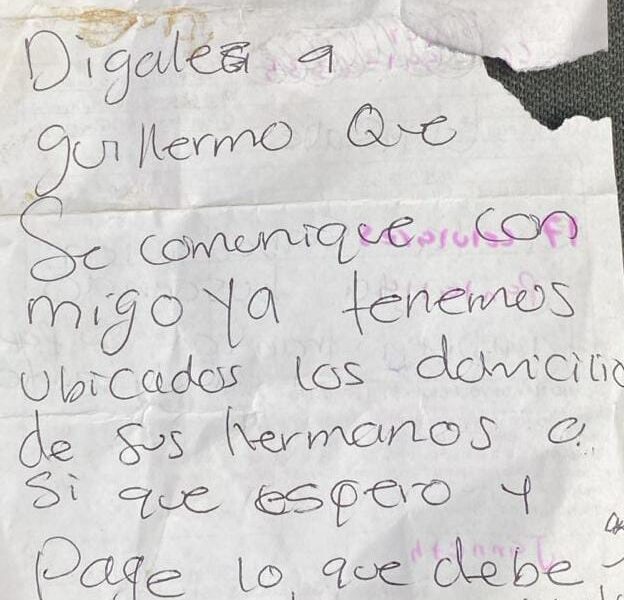 Digales a
guillermo Que
Se comunique con
migo ya tenemos
Ubicados los domicilio
de sus hermanos a
Si que espero y
Page lo que debe